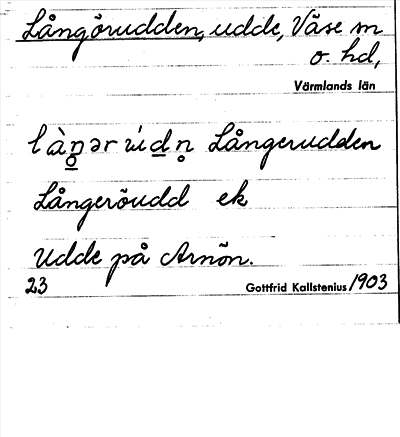 Långörudden, udde, Väse sn
o. hd,
Värmlands län
Långerudden
Långeröudd ek
Udde på Arnön.
23 Gottfrid Kallstenius 1903